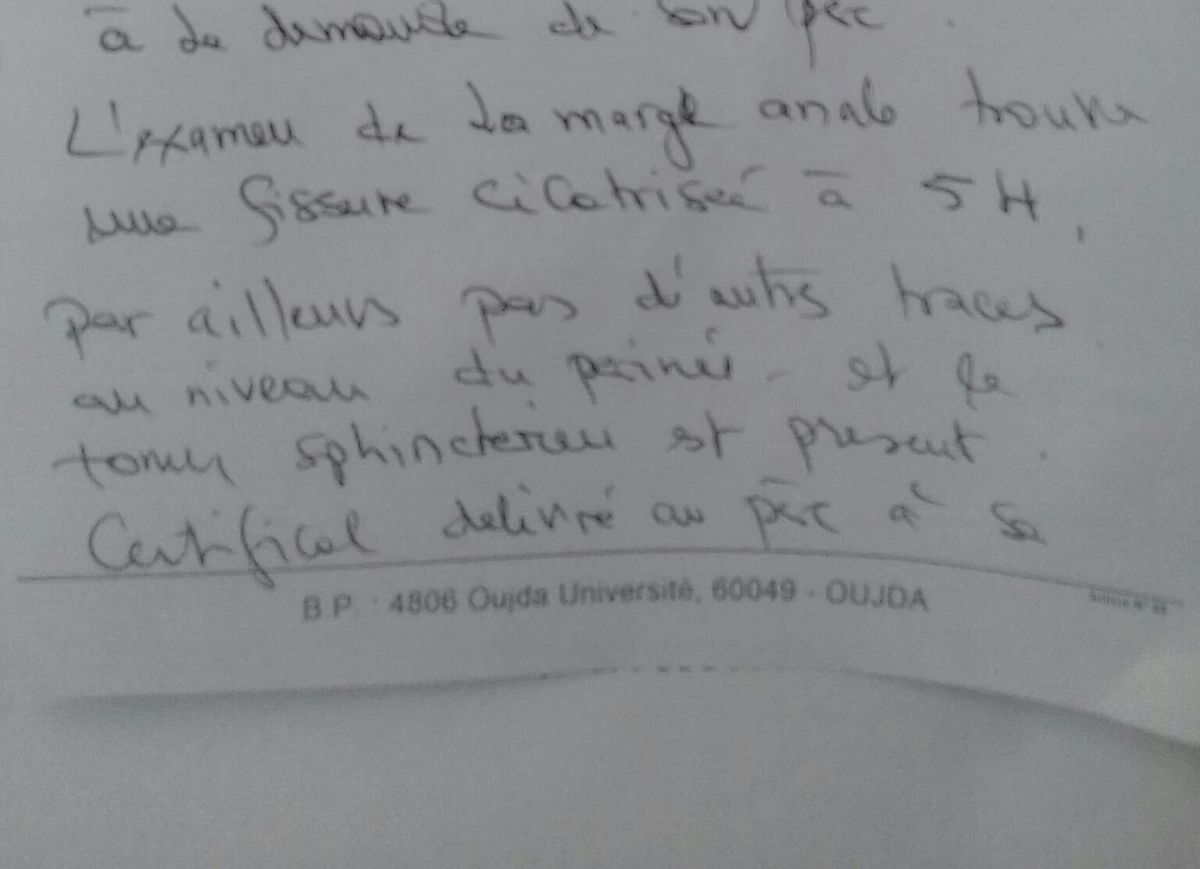 à la demande de son père.
L'examen de la marge anale trouve
une fissure cicatrisée à 5H,
par ailleurs pas d'autres traces
au niveau du périnée et le
tonus sphinctérien est present.
Certificat delivré au père à sa
B.P. : 4806 Oujda Université, 60049 - OUJDA